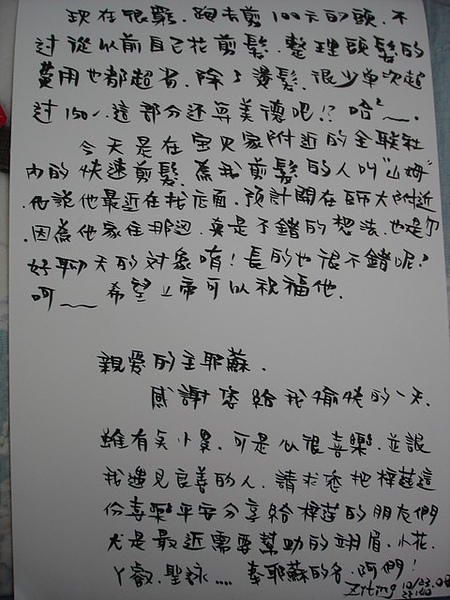 現在很窮,跑去剪100元的頭,不
过從以前自己花剪髮、整理頭髮的
費用也都超省,除了燙髮,很少单次超
过150.這部分还真美德吧!?哈²~.
今天是在宝贝家附近的全联社
內的快速剪髮.為我剪髮的人叫"山姆"
.他說他最近在找店面,預計開在師大附近
.因為他家住那边.真是不錯的想法.也是个
好聊天的对象唷!長的也很不錯呢?
呵~ 希望上帝可以祝福他.
親愛的主耶蘇.
感謝您給我愉快的一天.
雖有笑小累,可是心很喜樂.並讓
我遇見良善的人.請求您把梓莛這
份喜樂平安分享給梓莛的朋友們
尤是最近需要幫助的翊眉.小花.
丫叡.聖詠....奉耶蘇的名.阿們!
Ziting 10/23.08